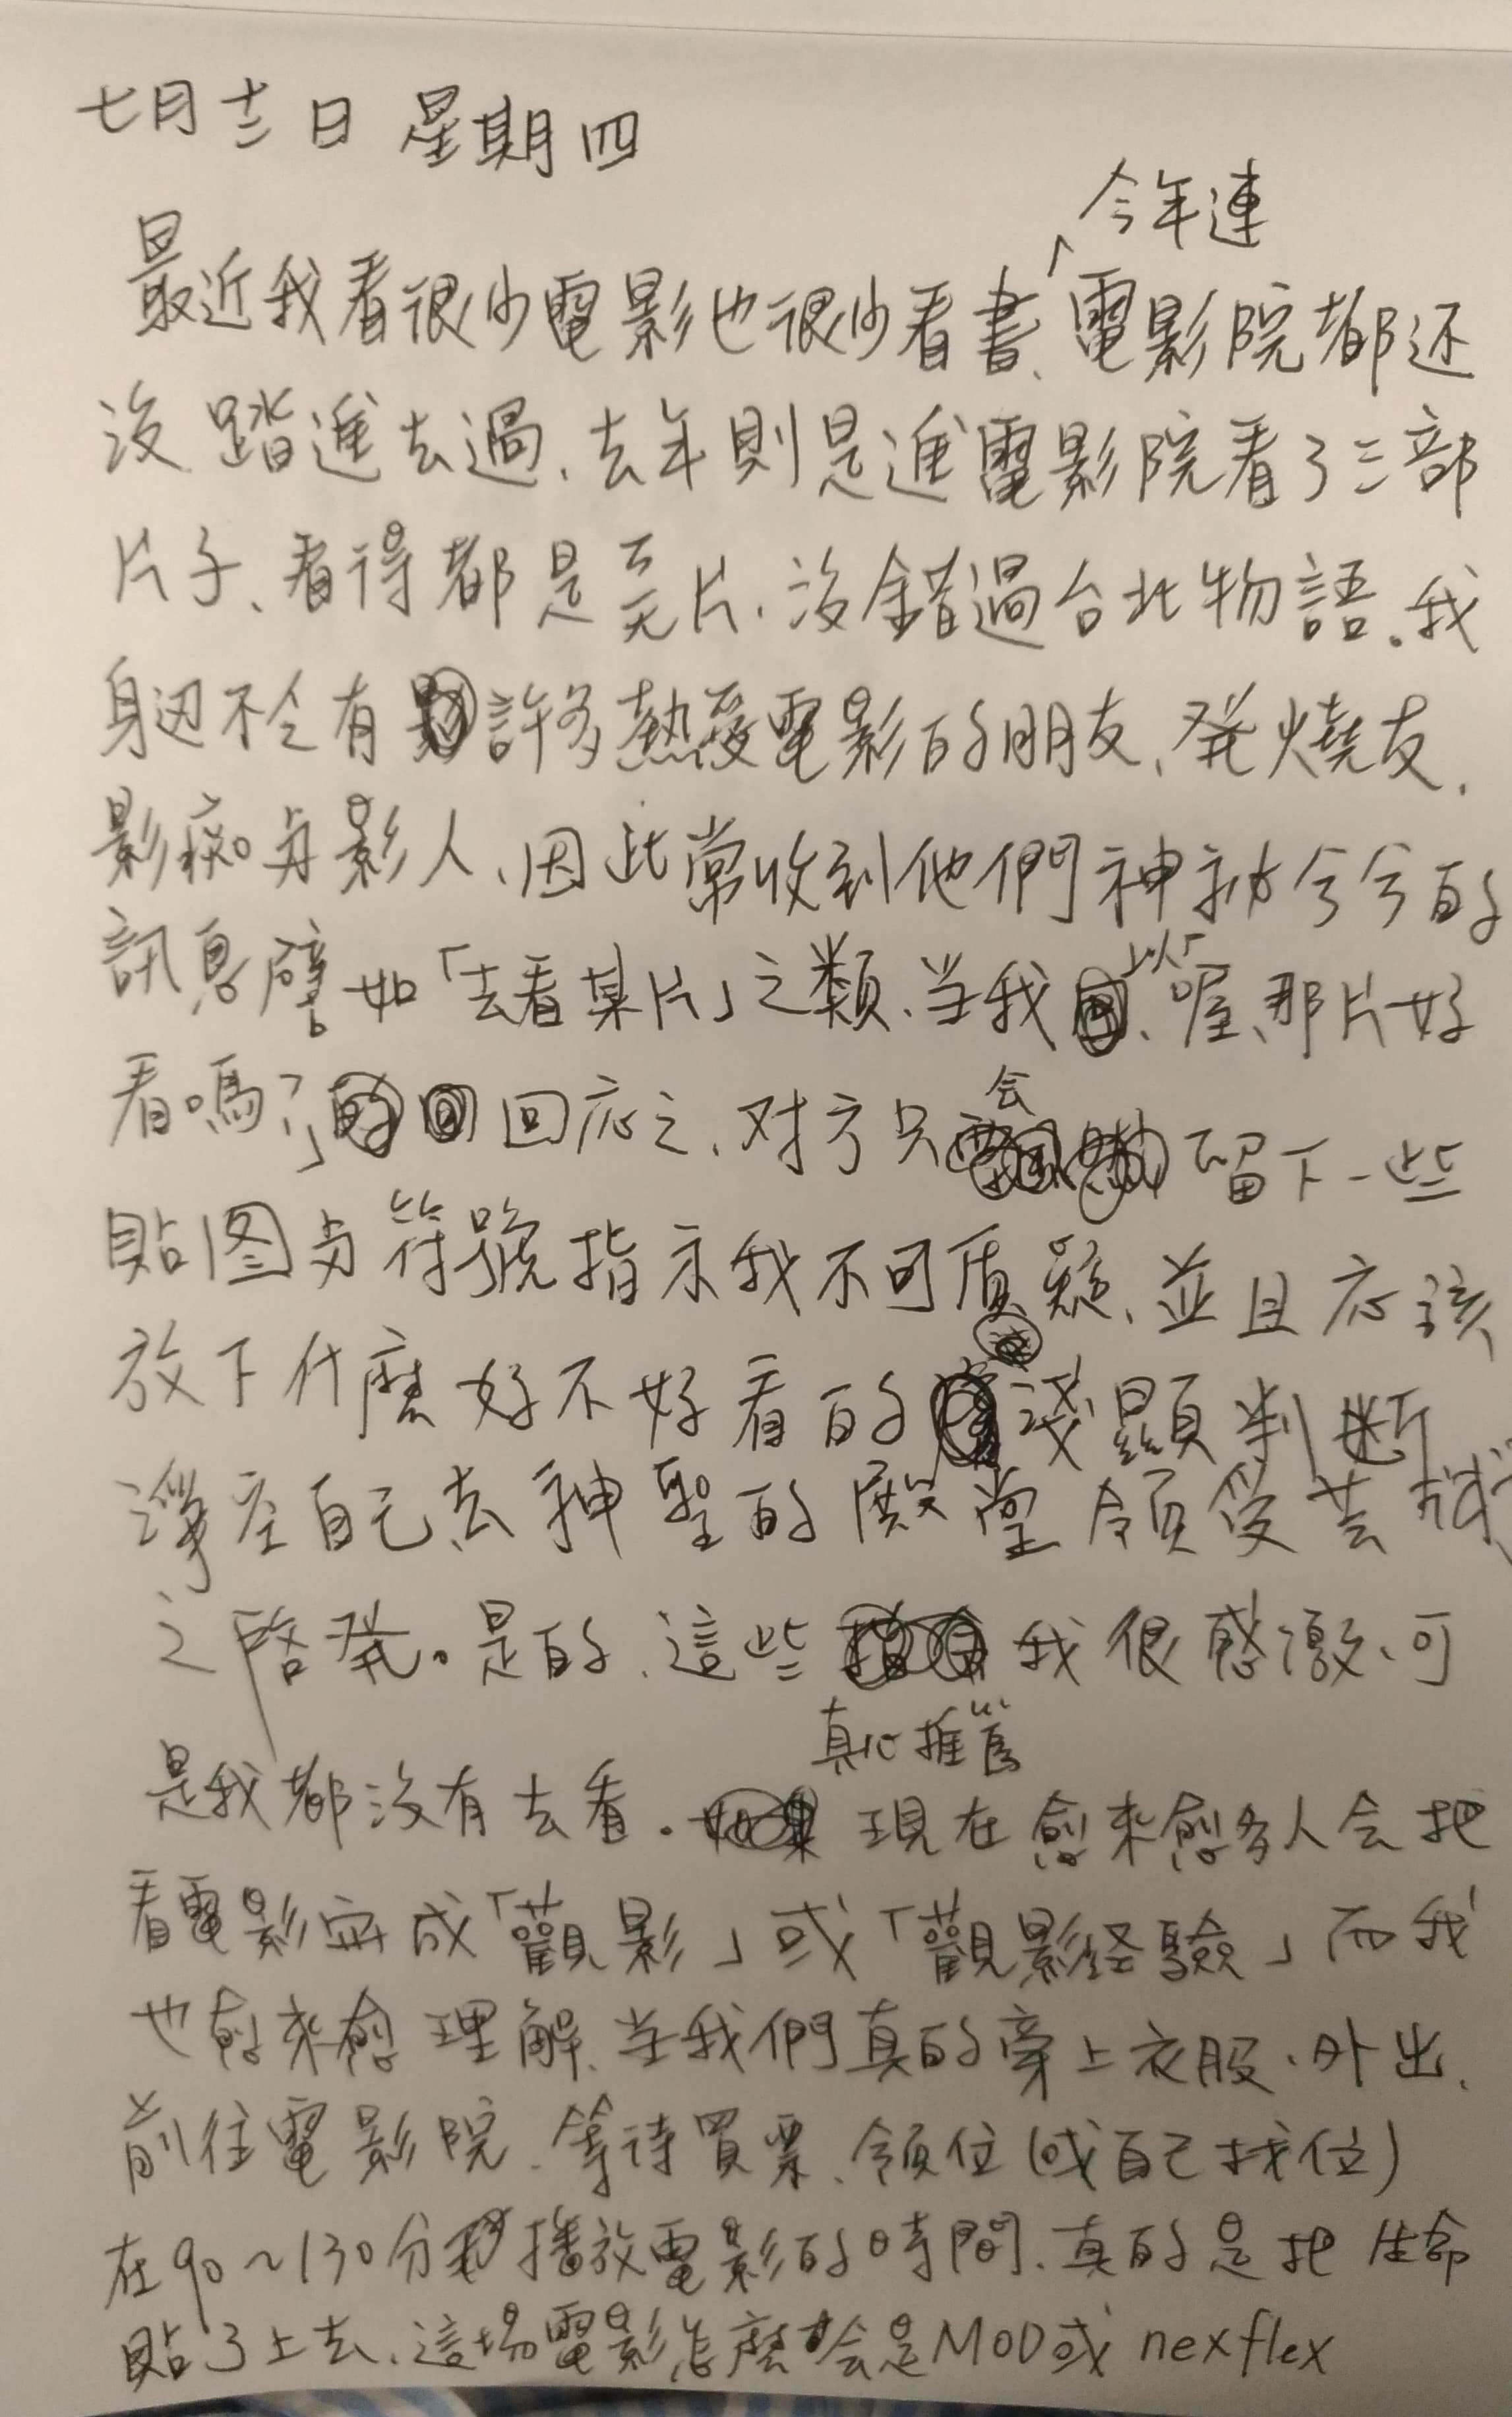 七月十三日 星期四
今年連
最近我看很少電影也很少看書、電影院都还
沒踏進去過、去年則是進電影院看了三部
片子、看得都是丟片、沒錯過台北物語。我
身边不乏有許多熱愛電影的朋友、発燒友、
影痴与影人、因此常收到他們神祕兮兮的
訊息譬如「去看某片」之類、当我以「喔、那片好
看嗎?」回应之、对方只会留下一些
貼图与符號指示我不可质疑、並且应該
放下什麼好不好看的淺顯判断
淨空自己去神聖的殿堂領受芸術
之啓発。是的、這些我很感激、可
真心推薦
是我都沒有去看。現在愈来愈多人会把
看電影寫成「觀影」或「觀影経驗」而我
也愈来愈理解、当我們真的穿上衣服、外出、
前往電影院、等待買票、領位(或自己找位)
在90~130分鐘播放電影的時間、真的是把生命
貼了上去、這場電影怎麼会是MOD或nexflex